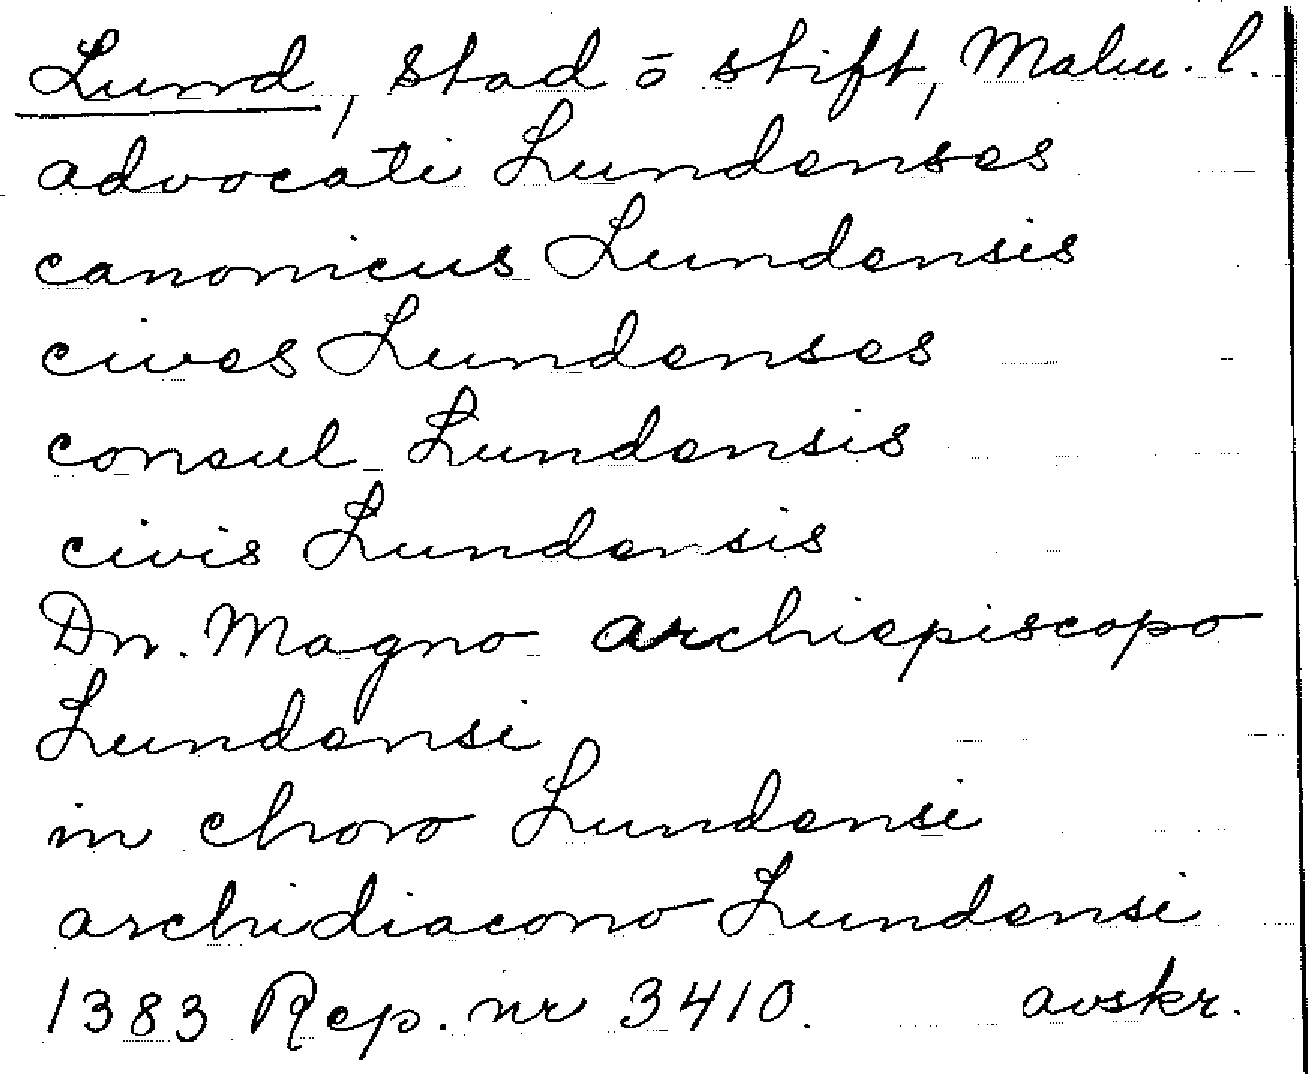 Lund, stad o stift, Malm. l.
advocati Lundenses
canonicus Lundensis
cives Lundenses
consul Lundensis
civis Lundensis
Dn. Magno archiepiscopo
Lundensi
in choro Lundensi
archidiacono Lundensi
1383 Rep. nr 3410. avskr.